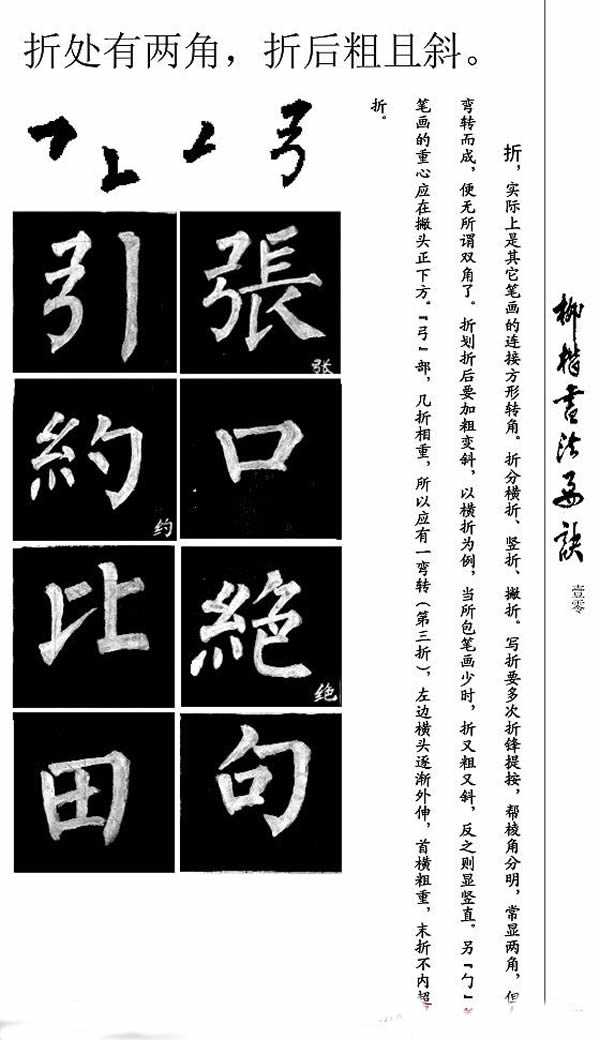 折处有两角，折后粗且斜。
折，实际上是其它笔画的连接方形转角。折分横折、竖折、撇折。写折要多次折锋提按，帮棱角分明，常显两角，但
弯转而成，便无所谓双角了。折划折后要加粗变斜，以横折为例，当所包笔画少时，折又粗又斜，反之则显竖直。另『勹』
笔画的重心应在撇头正下方。『弓』部，几折相重，所以应有一弯转（第三折），左边横头逐渐外伸，首横粗重，末折不内超
折。
弓
張
张
引
口
約
约
絕
绝
比
句
田
柳楷书法要诀
壹零